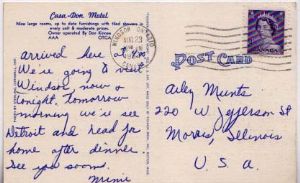 Casa-Don Motel
New large rooms, up to date furnishings with tiled showers
every unit & moderate prices.
Owner operated by Don Kovass
AAA OTCA
arrived here 5 P.M.
We're going to visit
Windsor now &
tonight. Tomorrow
morning we're see
Detroit and head for
home after dinner.
See you soon.
Mimi
WINDSOR ONTARIO
CANADA
POST CARD
Ailey Ments
220 W Jefferson St
Morris, Illinois
U. S. A.